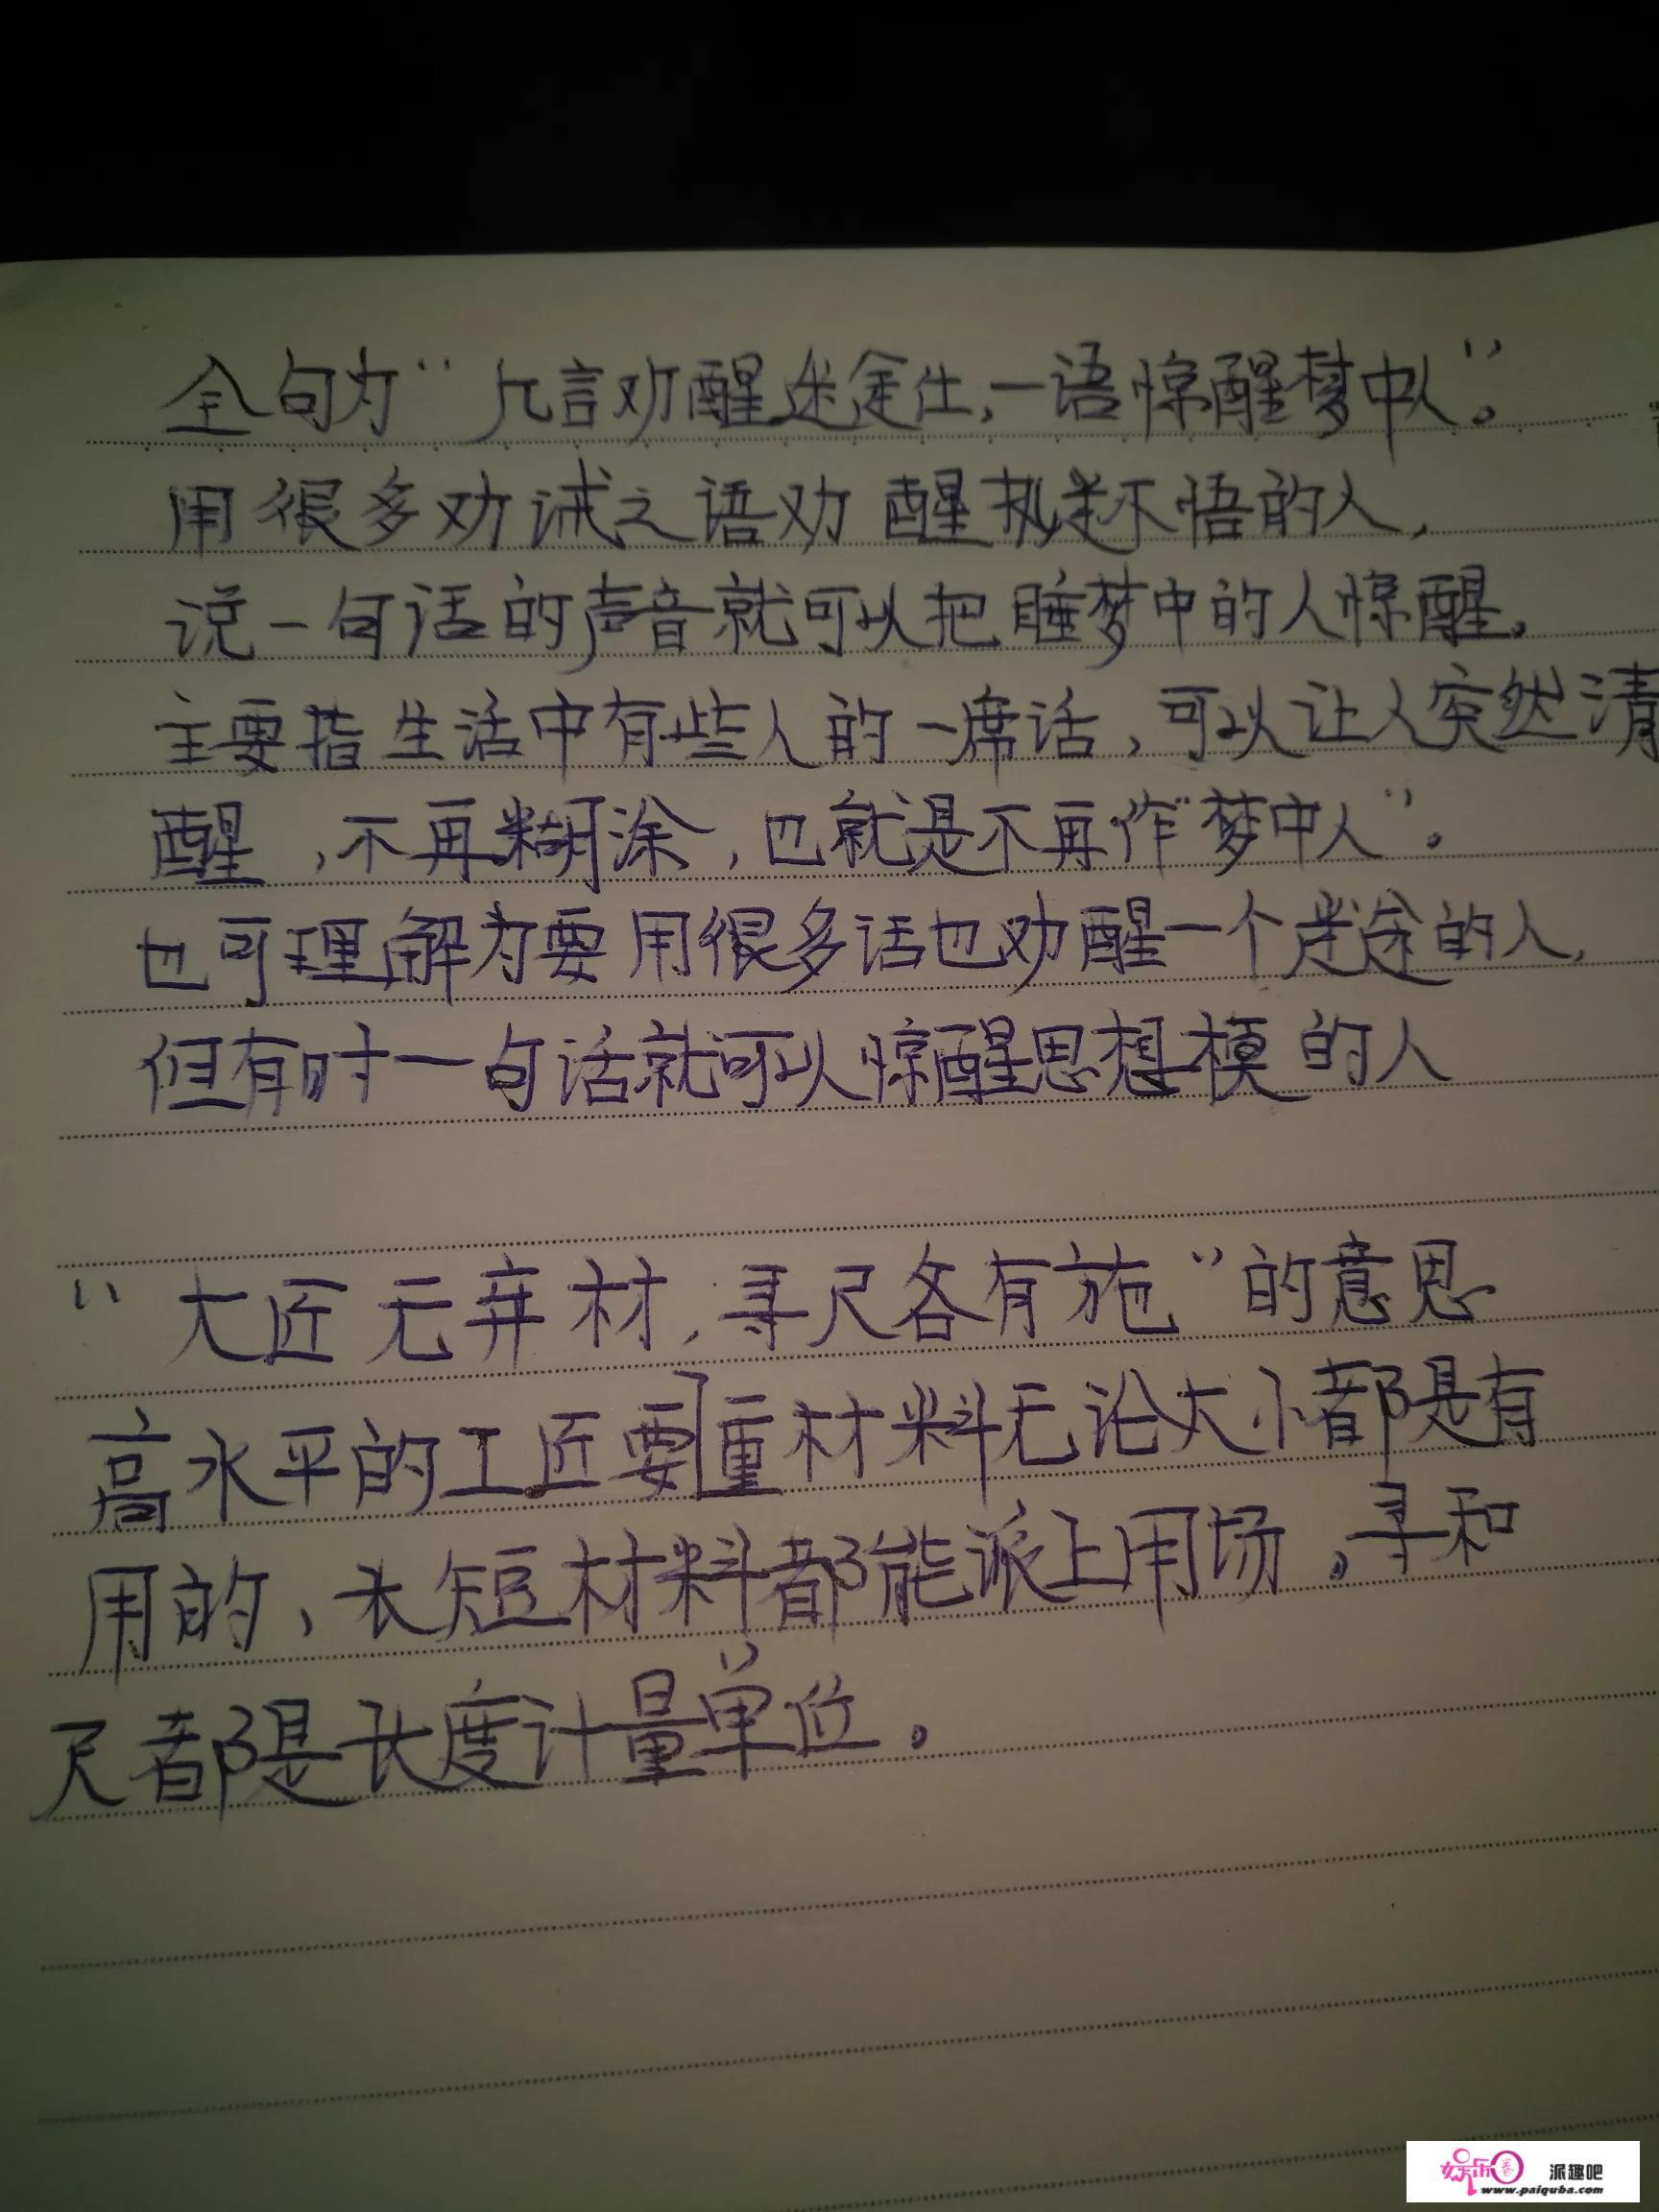 全句为“几言劝醒迷途仕,一语惊醒梦中人”。
用很多劝诫之语劝醒执迷不悟的人,
说一句话的声音就可以把睡梦中的人惊醒。
主要指生活中有些人的一席话,可以让人突然清
醒,不再糊涂,也就是不再作“梦中人”。
也可理解为要用很多话也劝醒一个迷途的人,
但有时一句话就可以惊醒思想模的人
“大匠无弃材,寻尺各有施”的意思
高水平的工匠要重材料无论大小都是有
用的、长短材料都能派上用场。寻和
尺都是长度计量单位。
娱乐圈 派趣吧
www.paiquba.com